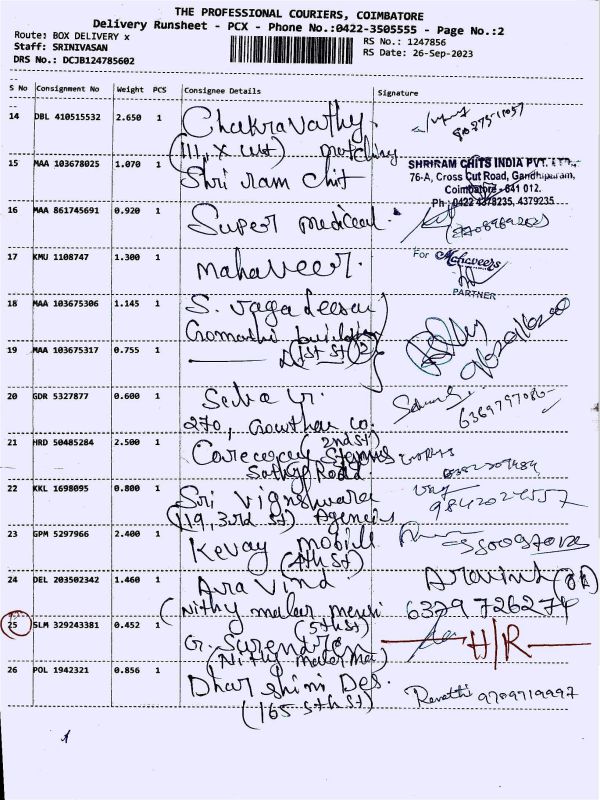 THE PROFESSIONAL COURIERS, COIMBATORE
Delivery Runsheet - PCX - Phone No.:0422-3505555 - Page No.:2
Route: BOX DELIVERY x
RS No.: 1247856
Staff: SRINIVASAN
RS Date: 26-Sep-2023
DRS No.: DCJB124785602
S No Consignment No Weight PCS Consignee Details Signature
14 DBL 410515532 2.650 1 Chakravathy
(111, X cut) matching
15 MAA 103678025 1.070 1 Shri ram chit
SHRIRAM CHITS INDIA PVT. LTD.,
76-A, Cross Cut Road, Gandhipuram,
Coimbatore - 641 012.
Ph : 0422 4378235, 4379235
16 MAA 861745691 0.920 1 Super medical
17 KMU 1108747 1.300 1 Mahaveer.
For Mahaveers
PARTNER
18 MAA 103675306 1.145 1 S. Jagadeesan
Gomathi
19 MAA 103675317 0.755 1 (1st St) 2
20 GDR 5327877 0.600 1
270, Gowtham Co. 6369797086
21 HRD 50485284 2.500 1 (2nd st)
Sathy Road
22 KKL 1698095 0.800 1 Sri Vigneshwara
(119, 3rd st) Agencies 9842024557
23 GPM 5297966 2.400 1 Kevay mobile
(4th St)
24 DEL 203502342 1.460 1 Aravind Aravind
(Nithy malar 6379726274
(5th St)
25 SLM 329243381 0.452 1 G. Surendra H/R
(Nithy malar
26 POL 1942321 0.856 1 Dharshini Des. Revathi 9789719997
(165 5th St)